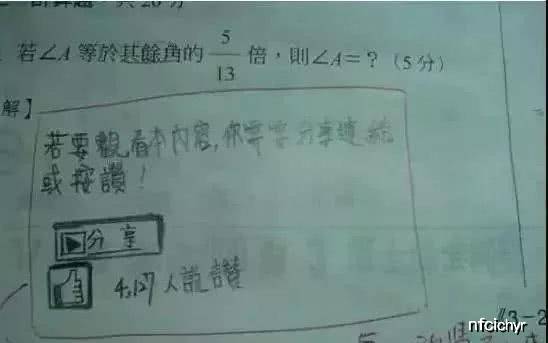 若∠A 等於其餘角的 5/13 倍，則∠A=？（5分）
解】
若要觀看本內容,你需要分享連結
或按讚！
分享
4,127 人說讚
nfcichyr